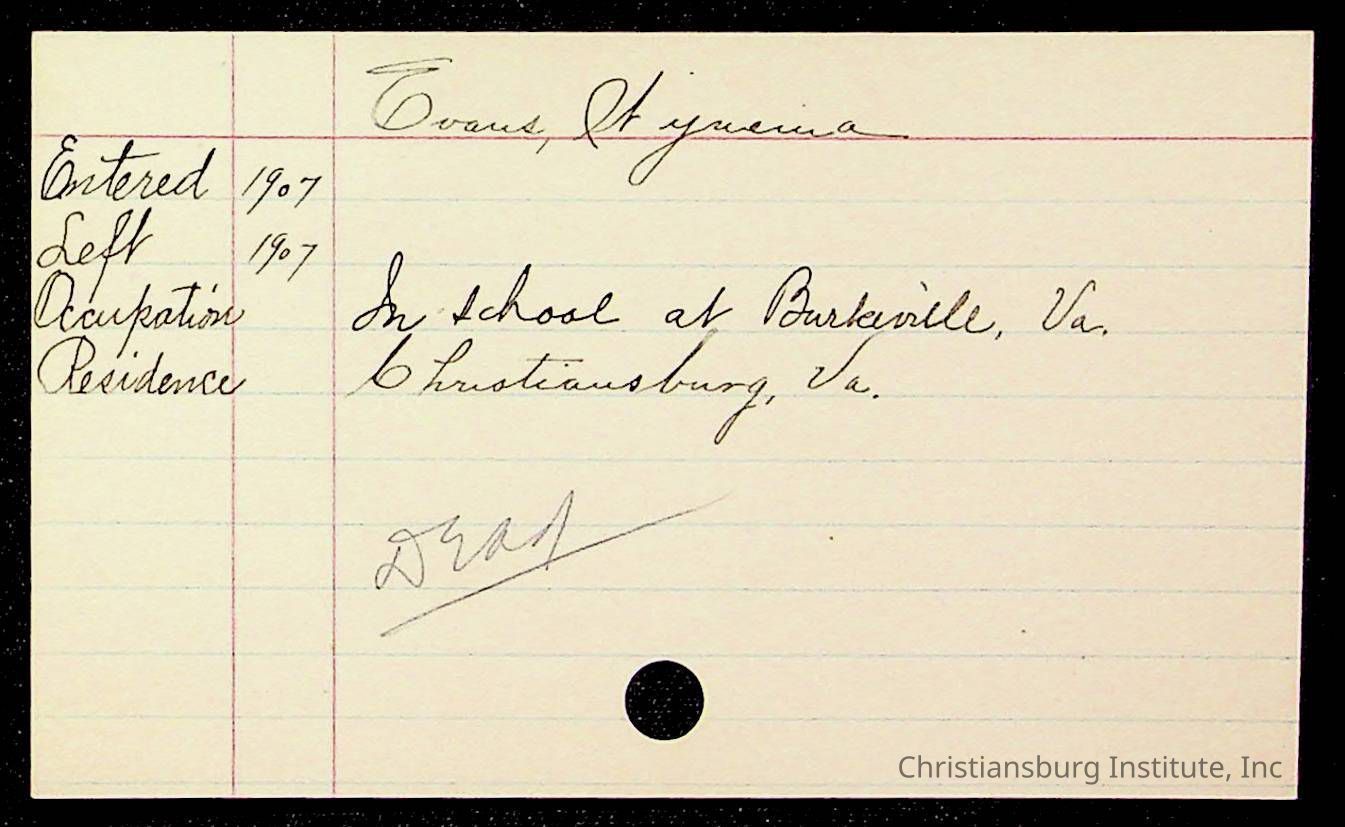 Evans,
Entered 1907
Left 1907
Occupation In school at Burkeville, Va.
Residence Christiansburg, Va.
DEAD
Christiansburg Institute, Inc